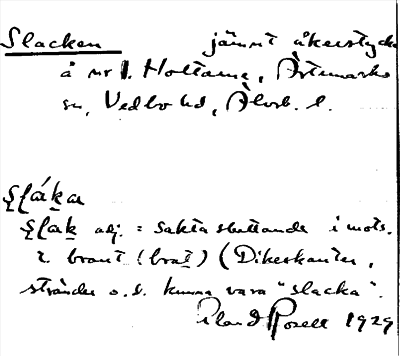 Slacken jämnt åkerstycke
å nr 1. Holtarne, Ärtemarks
sn, Vedbo hd, Älvsb. l.
slákа
slak adj. = sakta sluttande i mots.
t. brant (brat) (Dikeskanter,
stränder o.s. kunna vara "slacka".
Rosell 1929